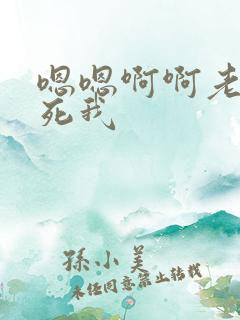 嗯嗯啊啊老
死我
孫小美
未经同意禁止转载